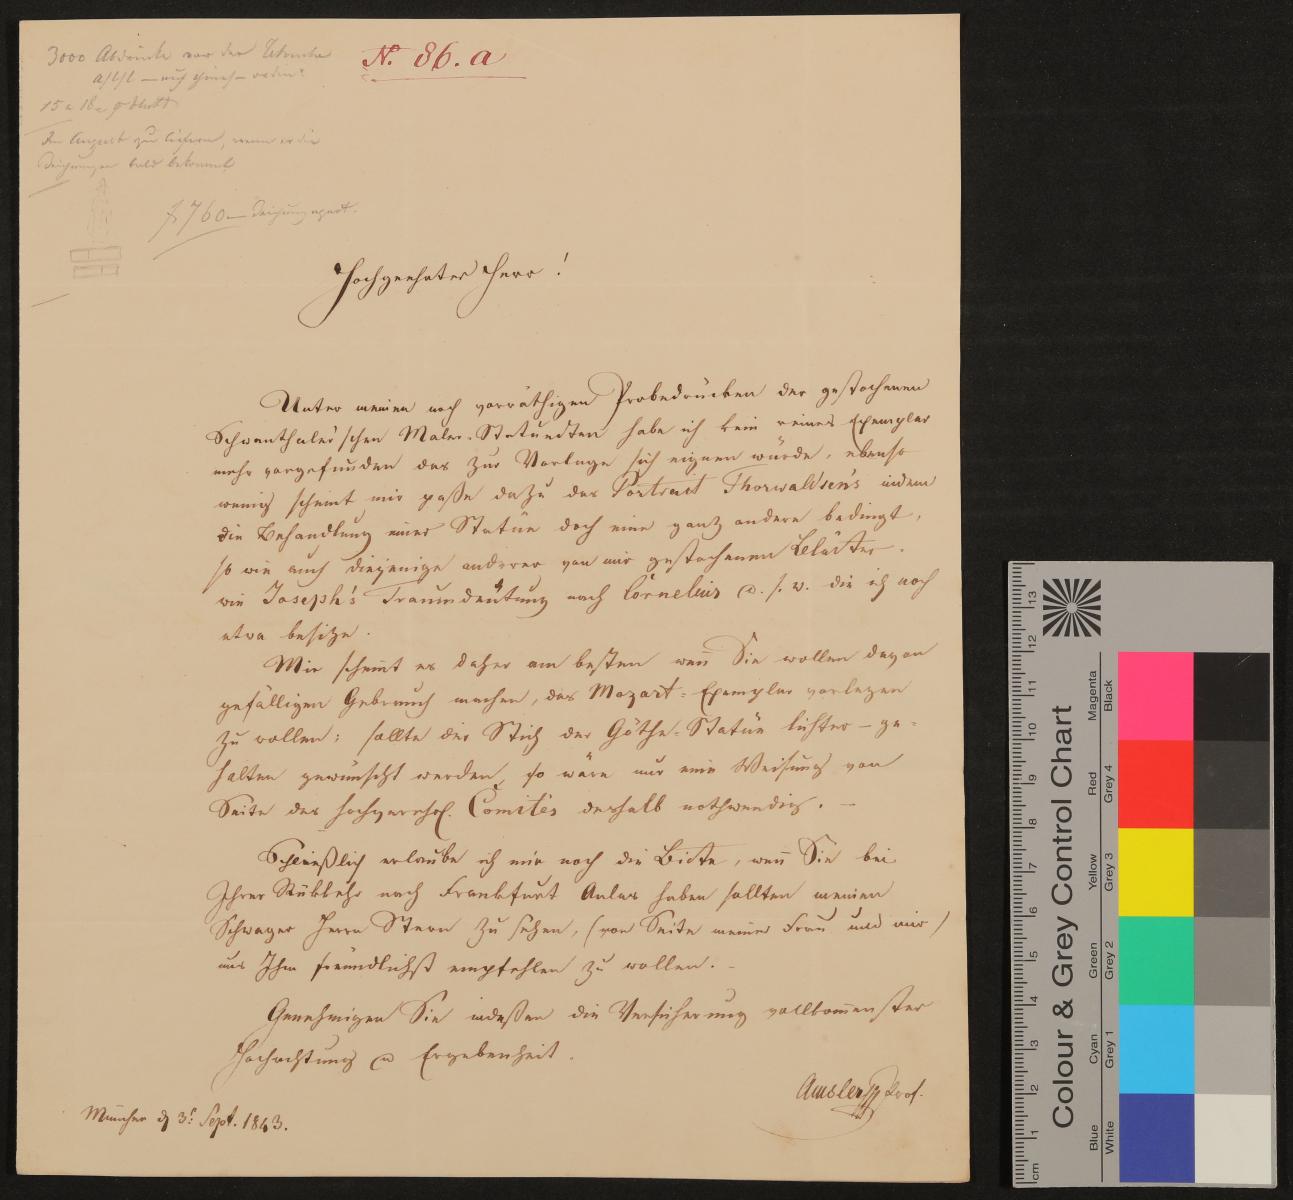 3000 Abdrücke vor der
15 a 18
Im August zu liefern, wenn er die
Zeichnungen bald bekommt
f 760— Zeichnung apart.
No. 86. a
Hochgeehrter Herr!
Unter meinen noch vorräthigen Probedrücken der gestochenen
Schwanthaler'schen Maler-Statuetten habe ich kein reines Exemplar
mehr vorgefunden das zur Vorlage sich eignen würde, ebenso
wenig scheint mir paße dazu das Portrait Thorwaldsen's indem
die Behandlung einer Statüe doch eine ganz andere bedingt,
so wie auch diejenige anderer von mir gestochenen Blätter.
wie Joseph's Traumdeutung nach Cornelius u. s. w. die ich noch
etwa besitze.
Mir scheint es daher am besten wen̄ Sie wollen davon
gefälligen Gebrauch machen, das Mozart-Exemplar vorlegen
zu wollen; sollte der Stich der Göthe-Statüe lichter – ge-
halten gewünscht werden, so wäre nur eine Weisung von
Seite des hochverehrl. Comités deshalb nothwendig. —
Schließlich erlaube ich mir noch die Bitte, wen̄ Sie bei
Ihrer Rükkehr nach Frankfurt Anlas haben sollten meinen
Schwager Herrn Stern zu sehen, (von Seite meiner Frau und mir)
uns Ihm freundlichst empfehlen zu wollen. –
Genehmigen Sie indeßen die Versicherung vollkom̄enster
Hochachtung u Ergebenheit.
Amsler Prof.
München d 3t Sept. 1843.
Colour & Grey Control Chart
Blue Cyan Green Yellow Red Magenta
White Grey 1 Grey 2 Grey 3 Grey 4 Black
cm 1 2 3 4 5 6 7 8 9 10 11 12 13